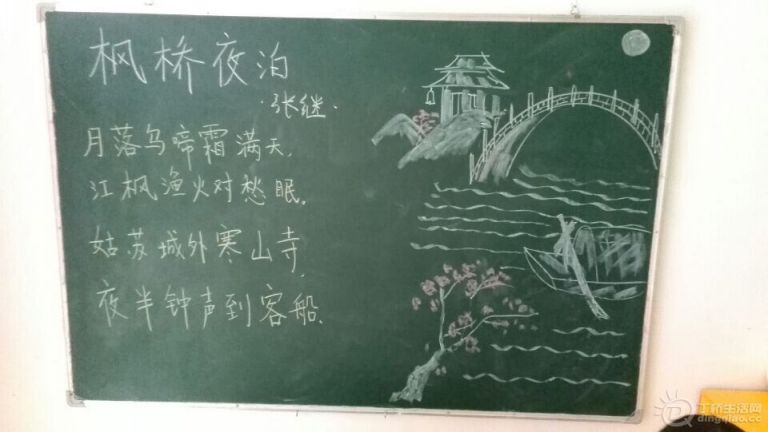 枫桥夜泊
·张继·
月落乌啼霜满天,
江枫渔火对愁眠。
姑苏城外寒山寺,
夜半钟声到客船。
丁桥生活网
dingqiao.cc